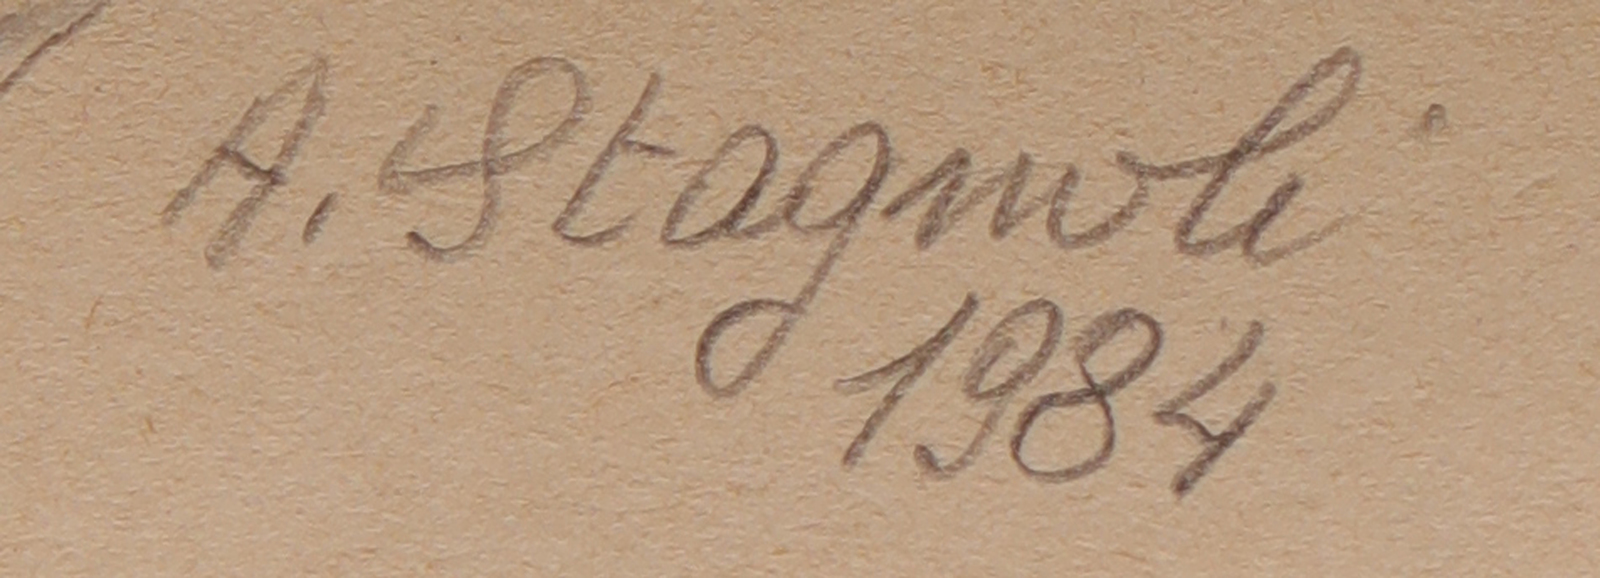 A. Stagnoli
1984